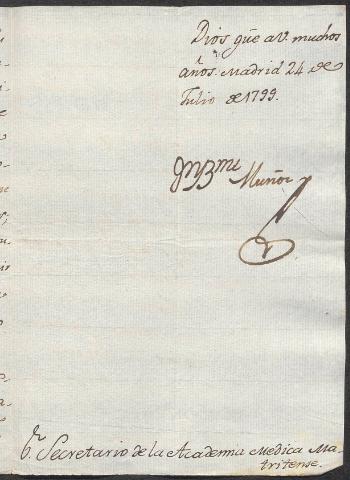 Dios gue a V. muchos
años. Madrid 24 de
Julio de 1799.
Muñoz
Sr. Secretario de la Academia Medica Ma-
tritense.